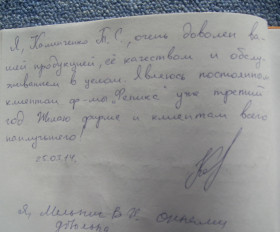 Я, Потипченко Б.С., очень доволен ва-
шей продукцией, её качеством и обслу-
живанием в целом. Являюсь постоянным
клиентом ф-мы "Феника" уже третий
год. Желаю фирме и клиентам всего
наилучшего!
05.02.14.
Я, Мельник В. И.